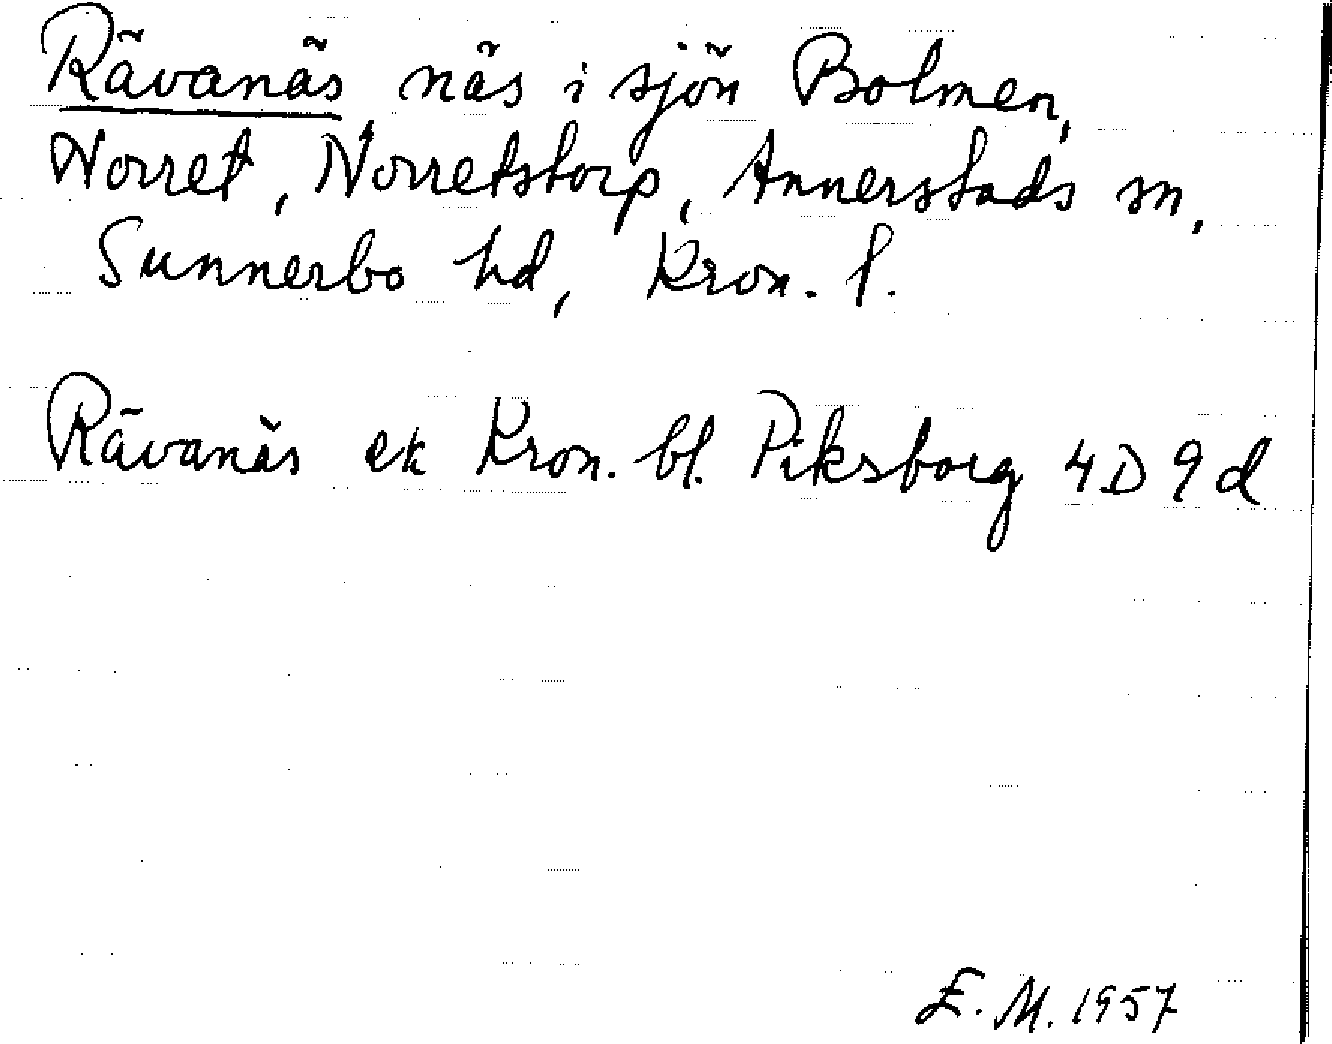 Rävanäs näs i sjön Bolmen,
Norret, Norretstorp, Annerstads sn,
Sunnerbo hd, Kron. l.
Rävanäs ek Kron. bl. Piksborg 4D 9d
E. M. 1957